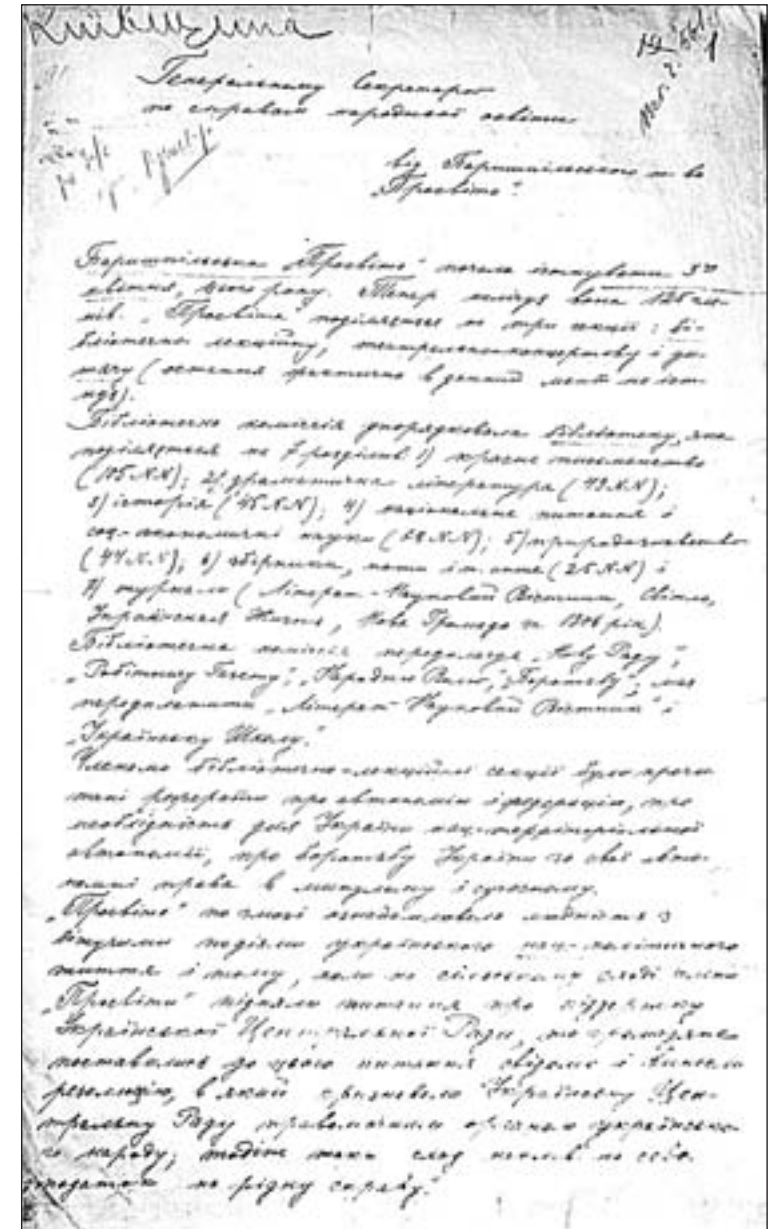 Київщина
Генеральному Секретарю
по справам народної освіти
від Бориспільського т-ва
„Просвіта"
Бориспільська „Просвіта" почала існувати 3го
квітня, цього року. Тепер налічує вона 125 чле-
нів. „Просвіта" поділяється на три секції: бі-
бліотечно лекційну, театрально-концертову і ди-
тячу (остання фактично в даний мент не існ-
ує).
Бібліотечна комісія упорядковала бібліотеку, яка
поділяється на 7 розділів 1) красне письменство
(105 NN); 2) драматична література (43 NN);
3) історія (45 NN); 4) національне питання і
соц.-економичні науки (68 NN); 5) природознавство
(44 NN); 6) збірники, ноти і т. инше (25 NN) і
7) журнали (Літерат-Науковий Вістник, Світло,
Украинская Жизнь, Нова Громада за 1906 рік).
Бібліотечна комісія передплачує „Нову Раду",
„Робітничу Газету", „Народню Волю", „Боротьбу"; має
передплатити „Літерат Науковий Вістник" і
„Українську Школу."
Членами бібліотечно-лекційної секції було прочи
тані реферати про автономію і федерацію, про
необхідність для України нац.-територіяльної
автономії, про боротьбу України за свої авто-
номні права в минулому і сучасному.
„Просвіта" по змозі ознайомлювала людність з
біжучими подіями українського нац.-політичного
життя і тому, коли на сільському сході члени
„Просвіти" підняли питання про піддержку
Української Центральної Ради, то громадяне
поставились до цього питання свідомо і винесли
резолюцію, в якій признавали Українську Цен-
тральну Раду правомочним органом українсько-
го народу; тоді ж таки сход наклав на себе
податок на рідну справу."